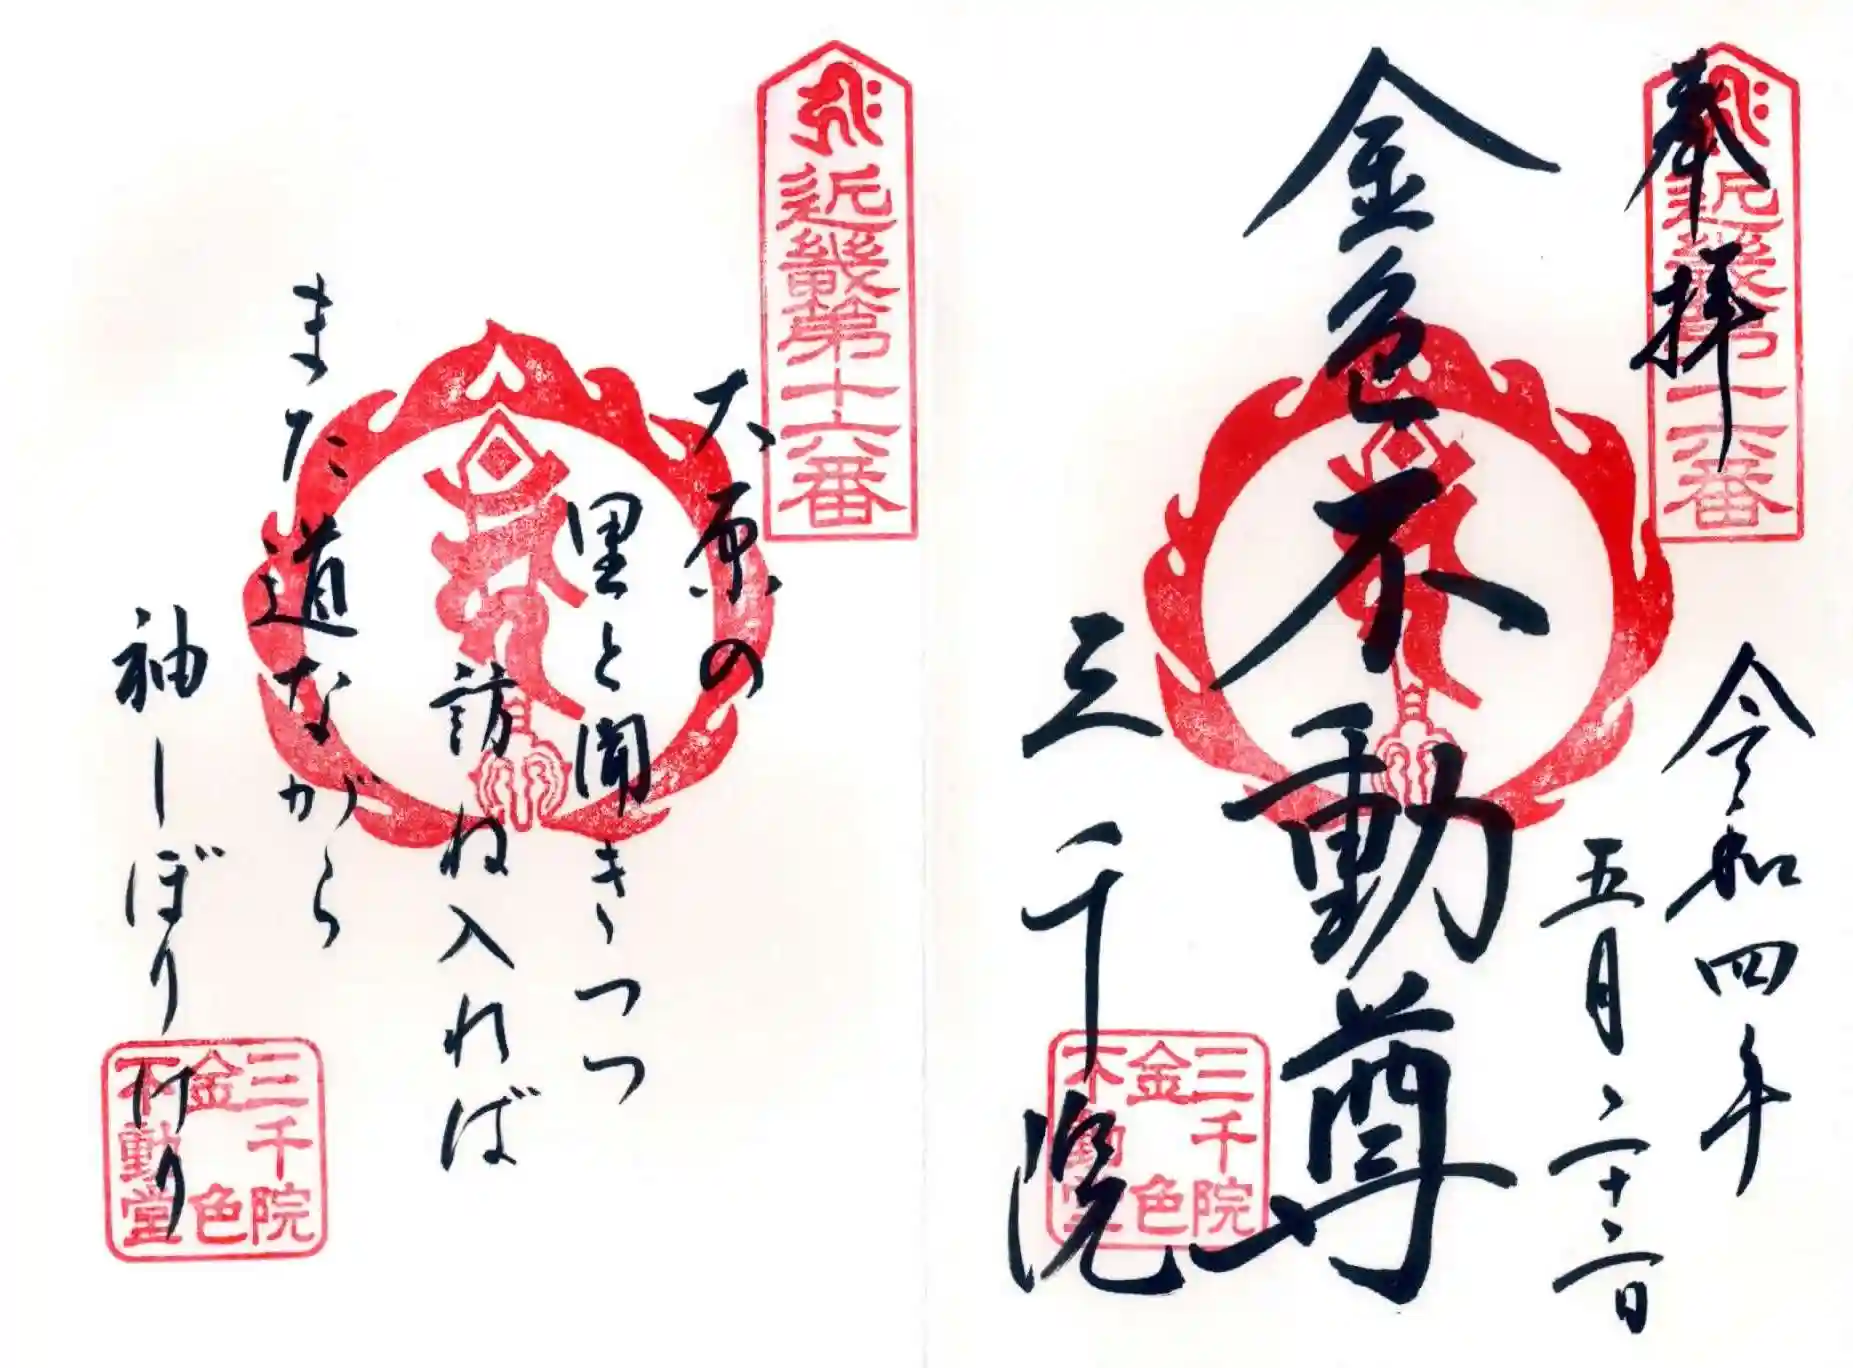 奉拝
近畿第十六番
令和四年
五月二十二日
金色不動尊
三千院
三千院
金色
不動堂
近畿第十六番
大原の
里と聞きつつ
訪ね入れば
また道ながら
袖しぼりけり
三千院
金色
不動堂